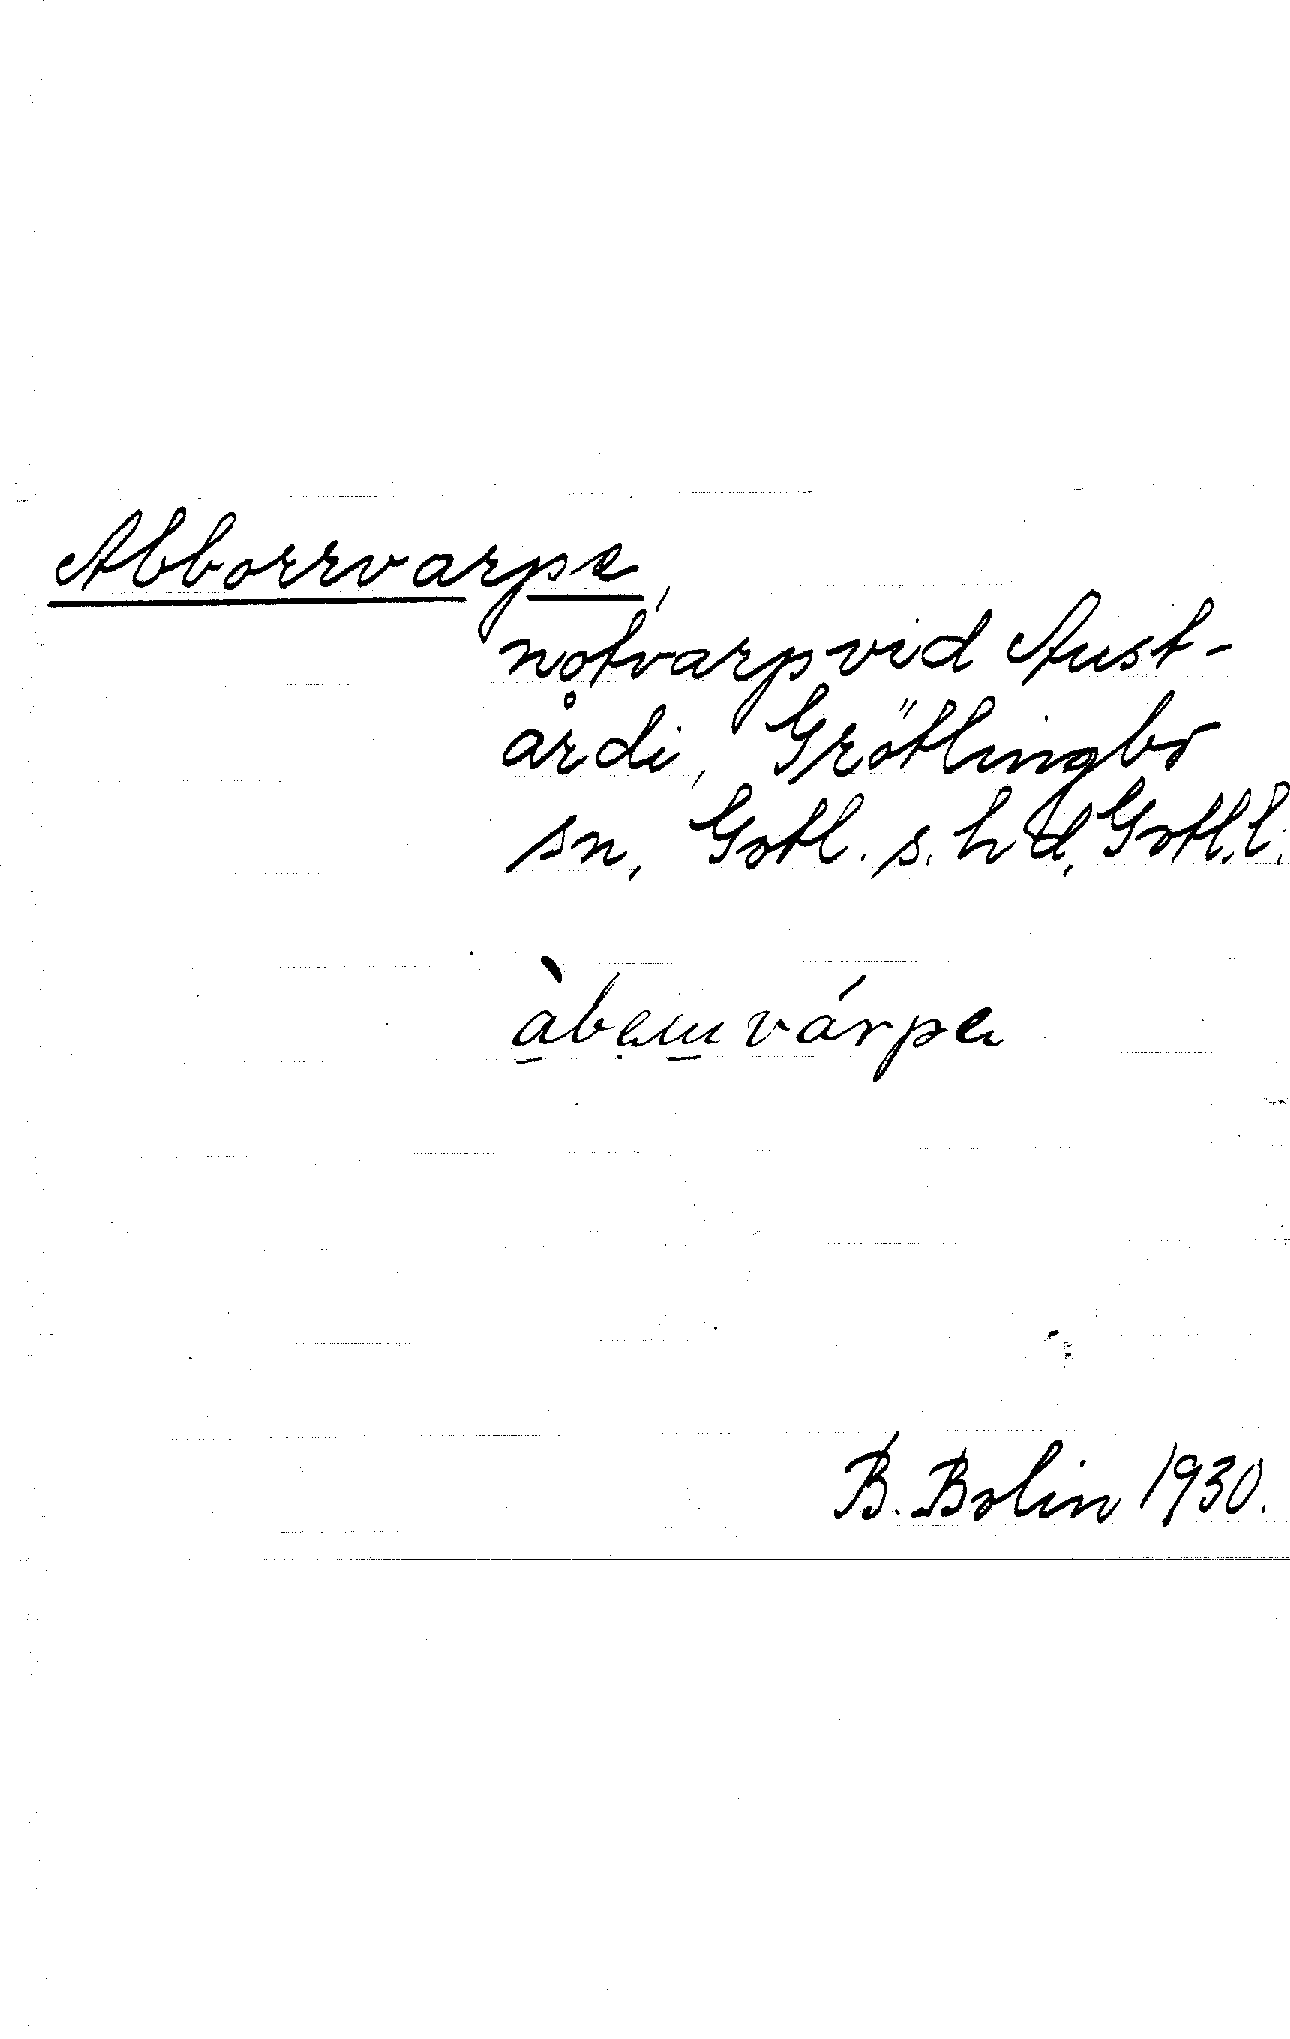 Abborrvarpe,
notvarp vid Aust-
årdi, Grötlingbo
sn, Gotl. s. hd, Gotl. l.
àbem várpe
B. Bolin 1930.